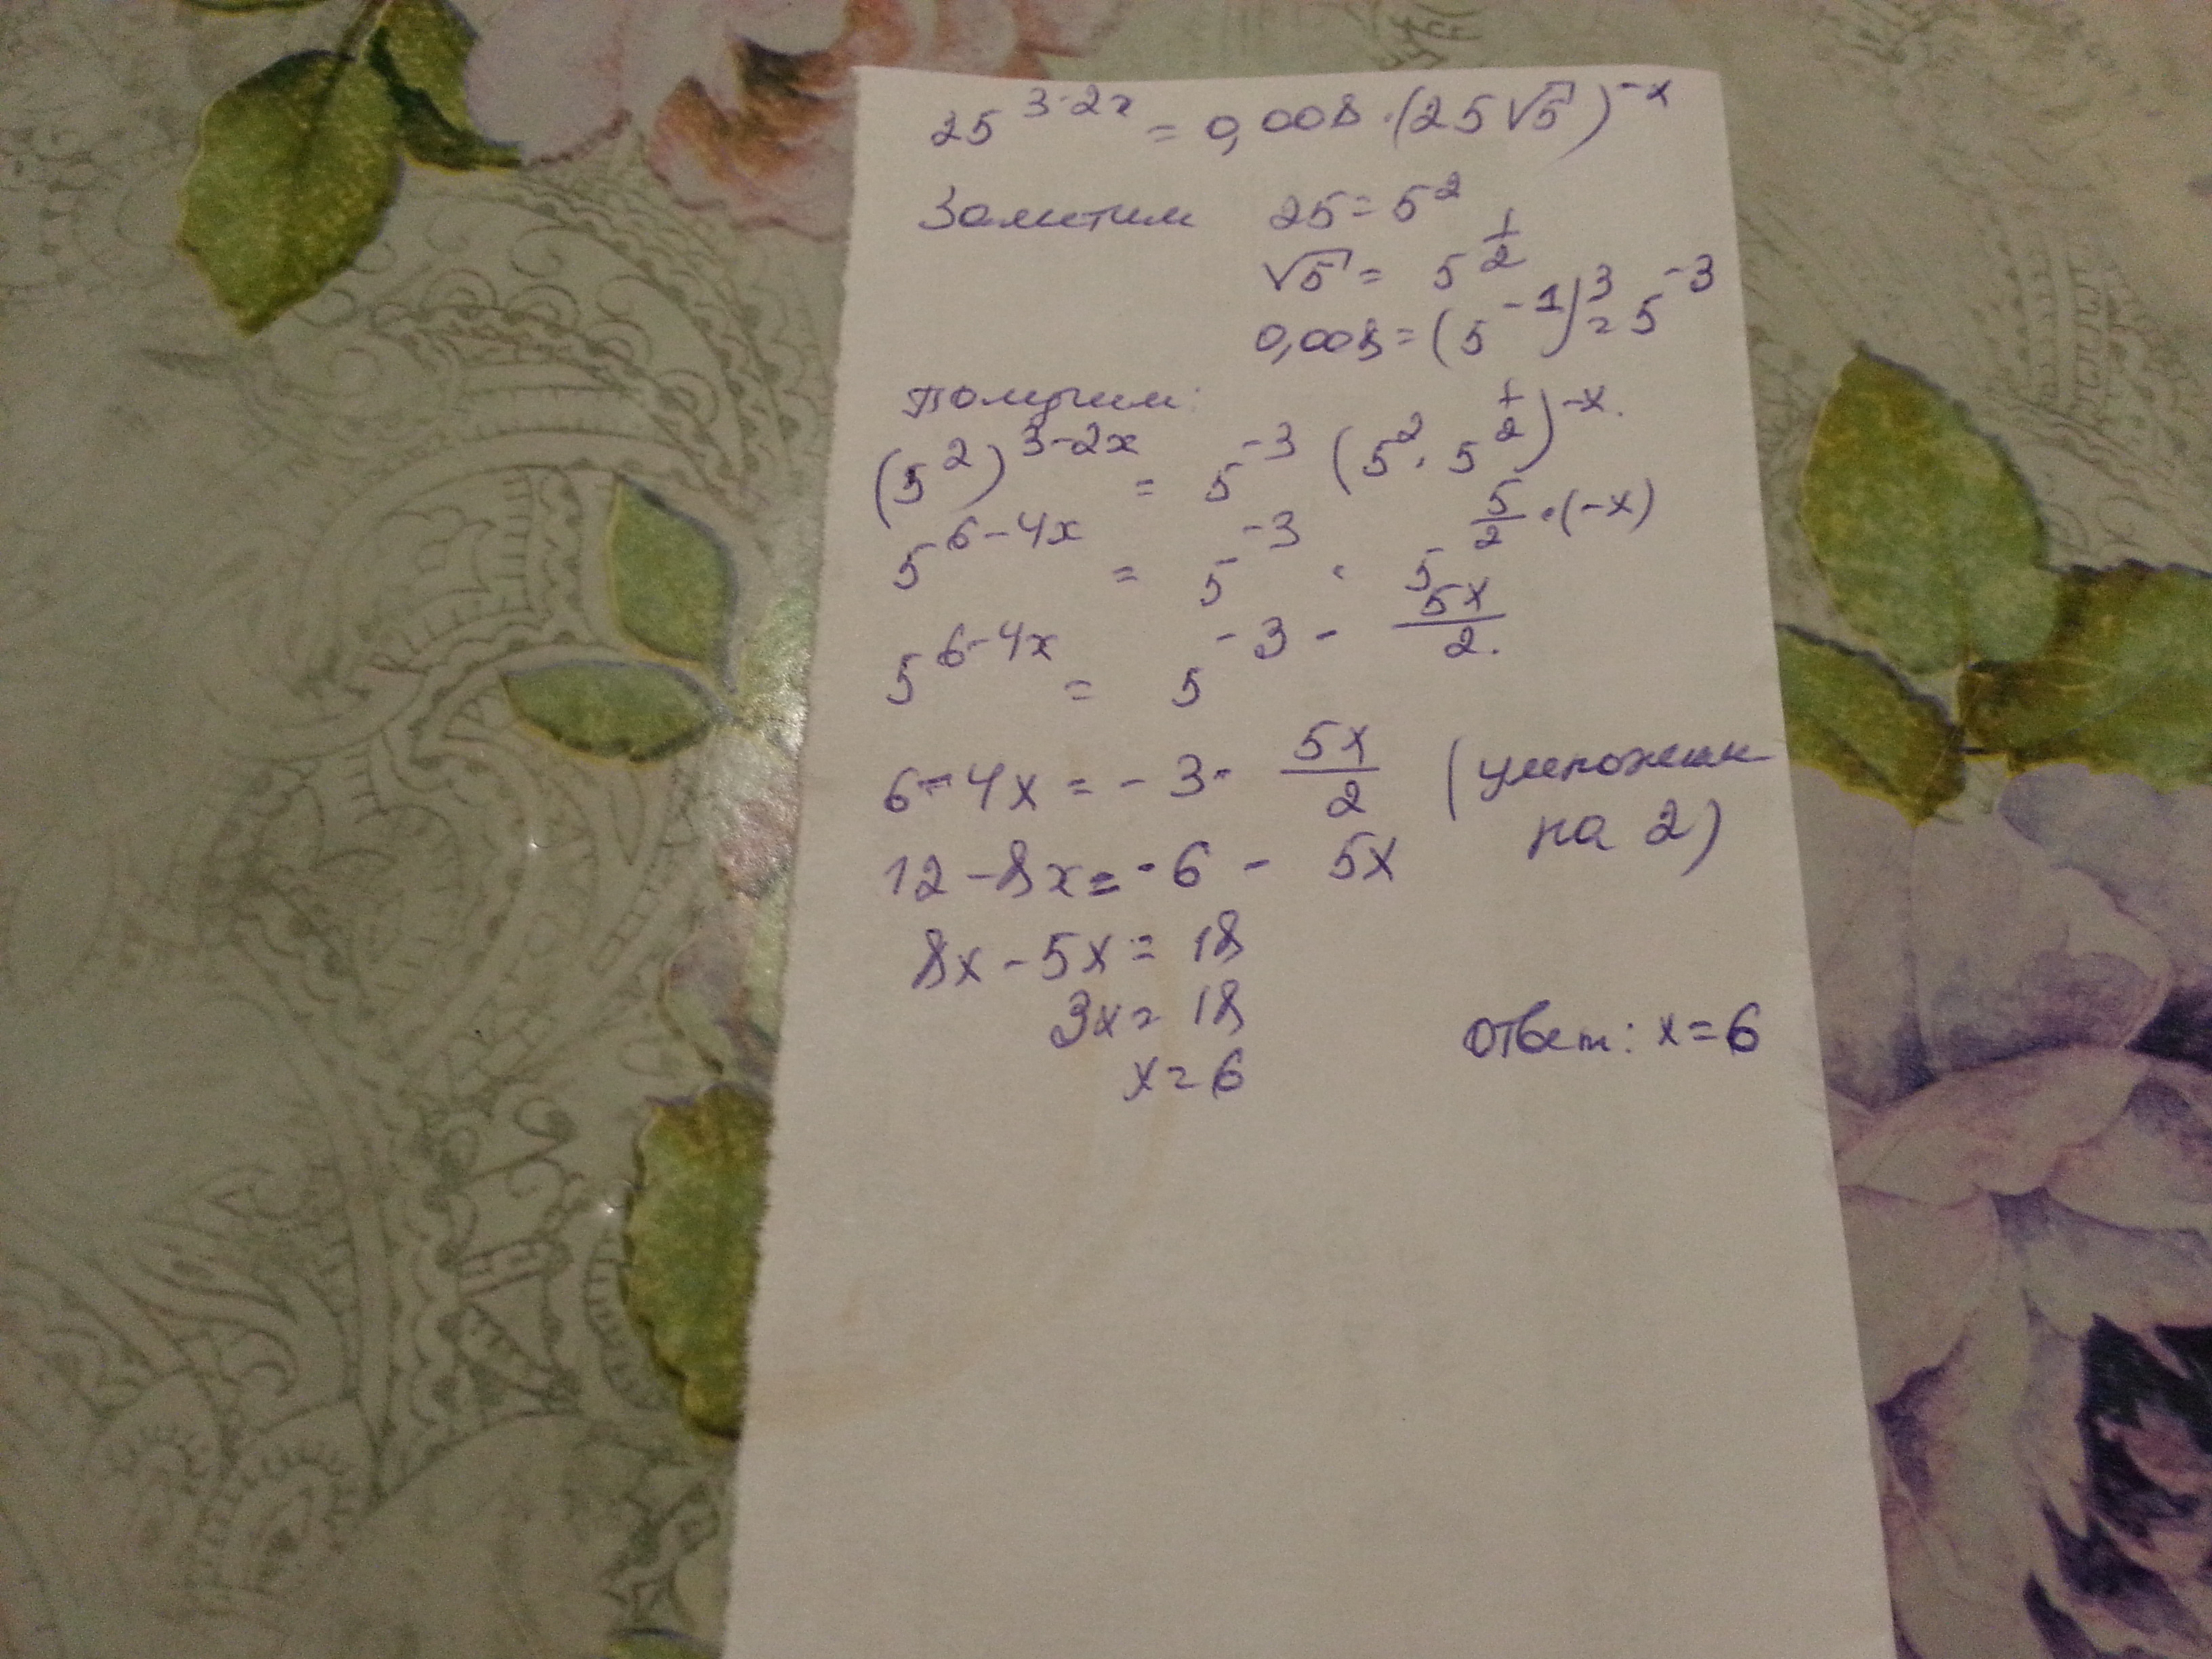 25^(3-2x) = 0,008 · (25√5)^(-x)
Заметим 25 = 5^2
√5 = 5^(1/2)
0,008 = (5^(-1))^3 = 5^(-3)
Получим:
(5^2)^(3-2x) = 5^(-3) (5^2 · 5^(1/2))^(-x).
5^(6-4x) = 5^(-3) · 5^(5/2 · (-x))
5^(6-4x) = 5^(-3 - 5x/2).
6 - 4x = -3 - 5x/2 (умножим
на 2)
12 - 8x = -6 - 5x
8x - 5x = 18
3x = 18
x = 6
Ответ: x = 6